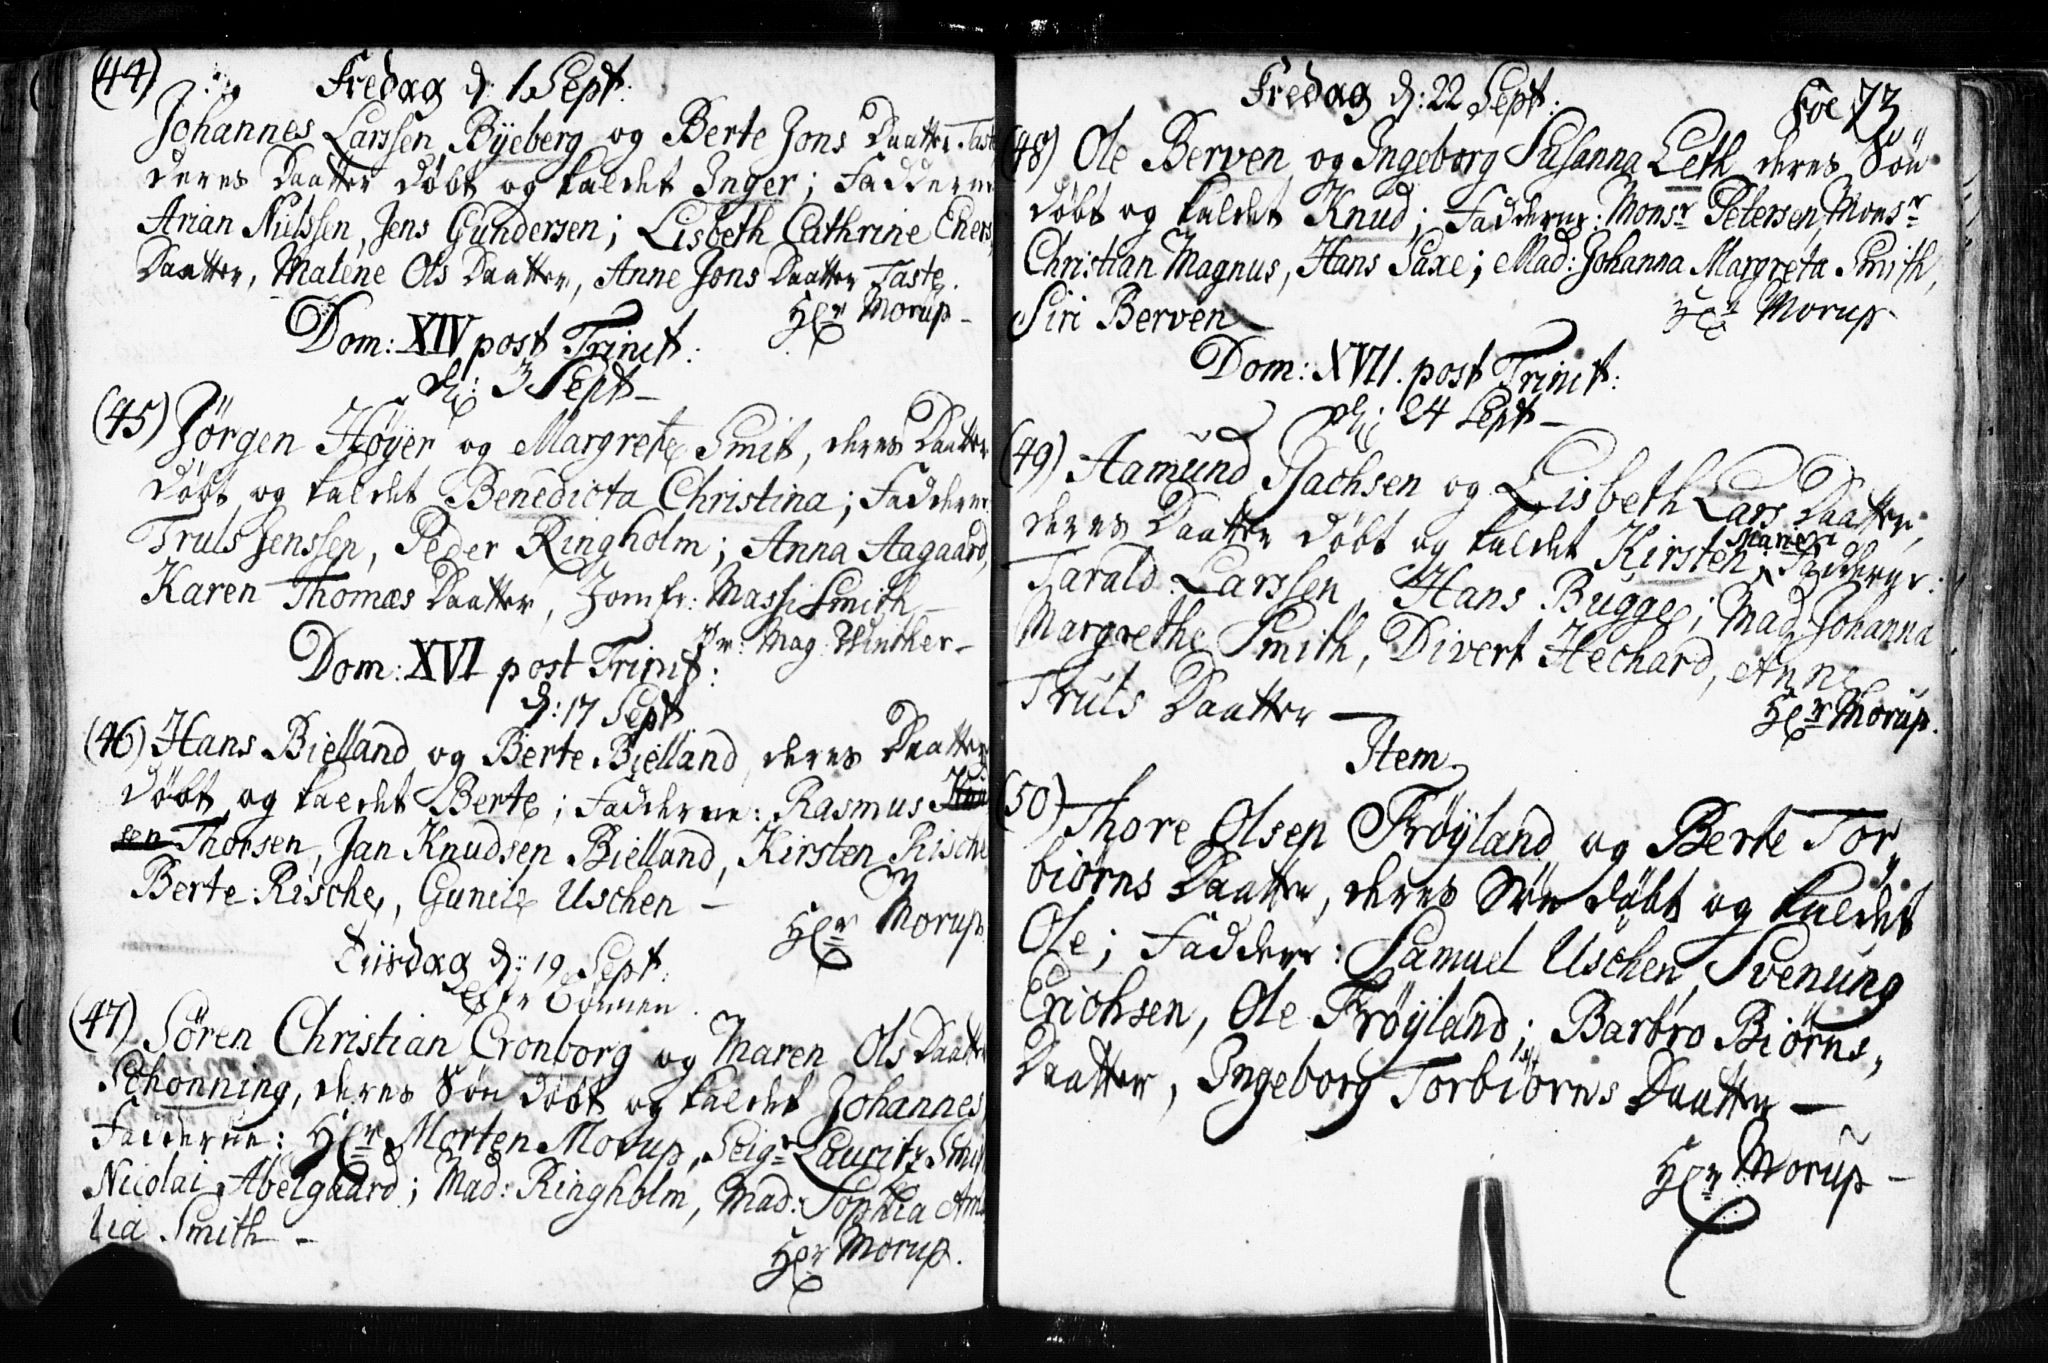 (44)
Fredag d: 1. Sept:
Johannes Larssen Byeberg og Berte Jons Daatter Taste
deres Daatter døbt og kaldet Inger; Fadderne
Arian Nielssen, Jens Gundersen; Lisbeth Cathrine Ehers
Daatter, Malene Ols Daatter, Anne Jons Daatter Taste.
Hr Morup -
Dom: XIV post Trinit:
d: 3 Sept -
(45) Jørgen Høyer og Margrete Smit, deres Daatter
døbt og kaldet Benedicta Christina; Fadderne
Truls Jenssen, Peder Ringholm; Anna Aagaard,
Karen Thomæs Daatter, Jomfr: Massi Smith -
Pr: Mag: Winther -
Dom: XVI post Trinit:
d: 17 Sept
(46) Hans Bielland og Berte Bielland deres Daatter
døbt og kaldet Berte; Fadderne: Rasmus
Thorsen, Jan Knudsen Bielland, Kirsten Rische
Berte Rische, Gunile Uschen -
Hr Morup.
Tiisdag d: 19 Sept:
Bønnen.
(47) Søren Christian Cronborg og Maren Ols Daatter
Schonning, deres Søn døbt og kaldet Johannes
Fadderne: Hr Morten Morup, Seigr Lauritz Smith
Nicolai Abelgaard; Mad: Ringholm, Mad: Sophia Ama
lia Smith -
Hr Morup.
Fredag d: 22 Sept:
Fol 73
(48) Ole Berven og Ingeborg Susanna Leth deres Søn
døbt og kaldet Knud; Fadderne: Monsr Petersen, Monsr
Christian Magnus, Hans Saxe; Mad: Johanna Margreta Smith,
Siri Berven
Hr Morup -
Dom: XVII. post Trinit:
d: 24 Sept -
(49) Aamund Isachsen og Lisbeth Lars Daatter,
deres Daatter døbt og kaldet Kirsten Maria Fadderne:
Tarald Larssen, Hans Bugge; Mad: Johanna
Margrethe Smith, Divert Hechard, Anne
Truls Daatter -
Hr Morup.
Item
(50) Thore Olsen Frøyland og Berte Tor
biørns Daatter, deres Søn døbt og kaldet
Ole; Faddere: Samuel Uschen, Svenung
Erichsen, Ole Frøyland; Barbro Biørns
Daatter, Ingeborg Torbiørns Daatter -
Hr Morup -